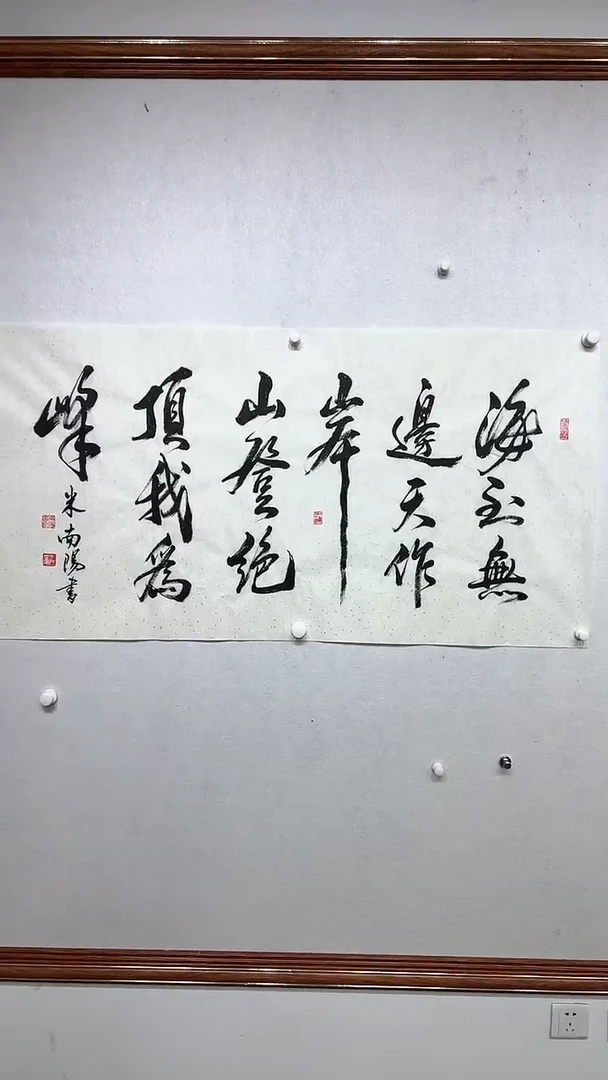 海到無
邊天作
岸
山登絶
頂我為
峰
米南陽書